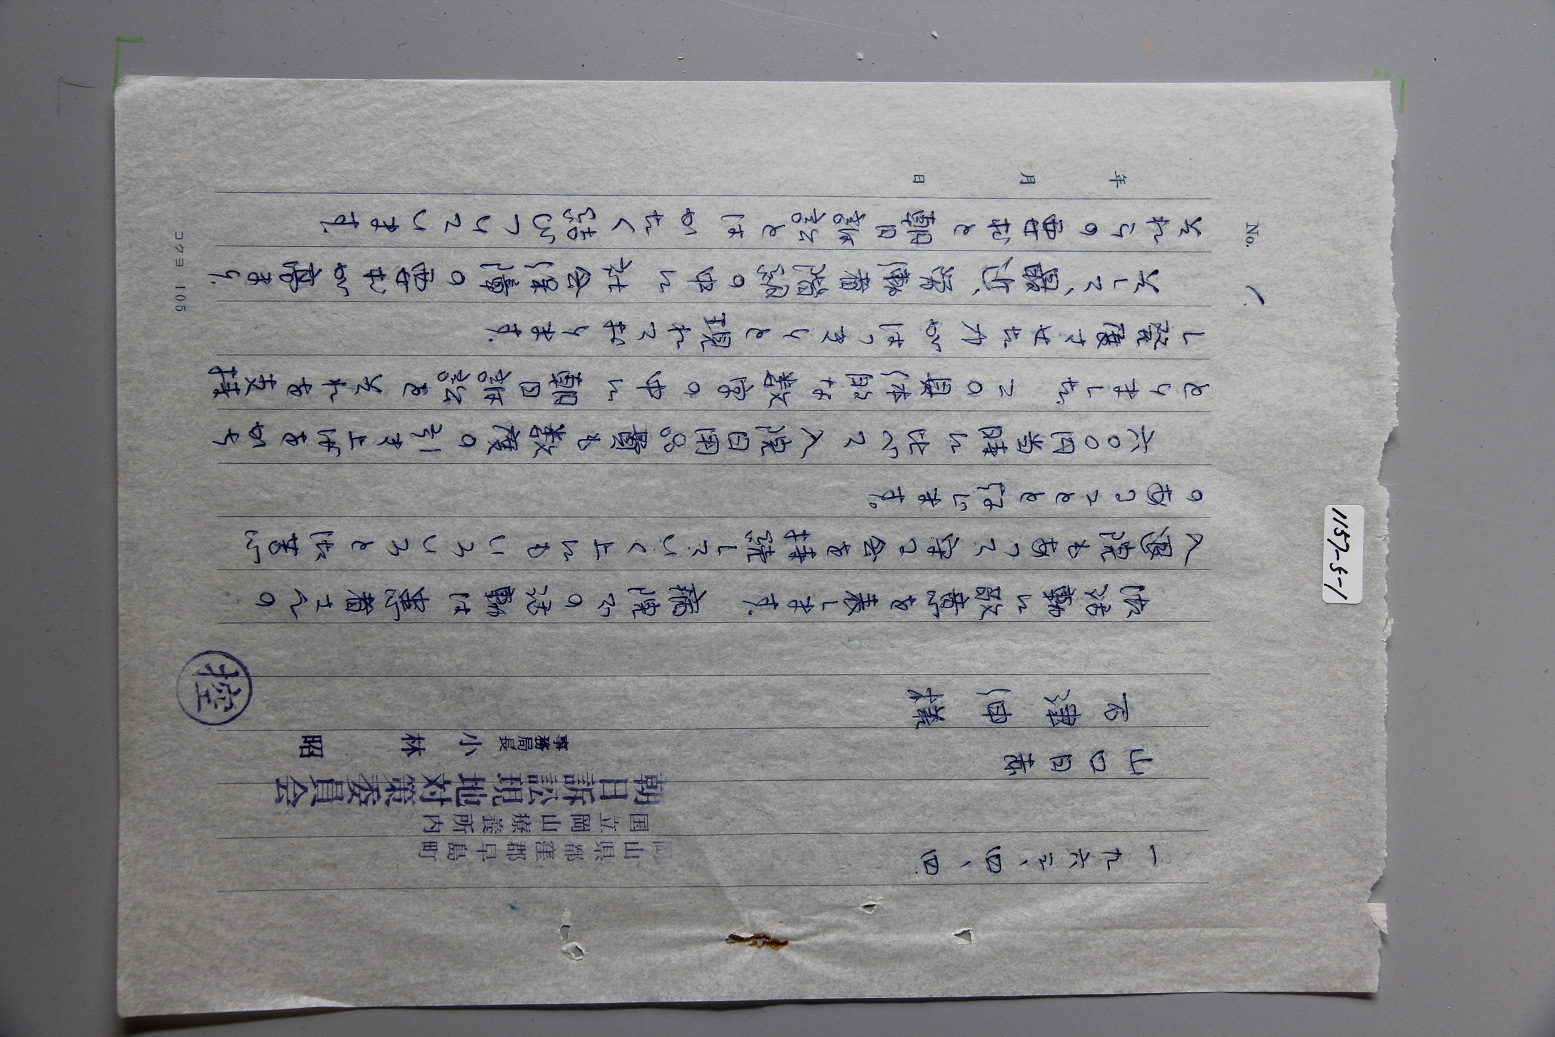 No. 1
年 月 日
一九六二、四、四
岡山県都窪郡早島町
国立岡山療養所内
朝日訴訟現地対策委員会
事務局長 小林 昭
山口日赤
様
控
御活動に敬意を表します。での活動は患者さんの
入退院もあって守る会を持続していく上にもいろいろと御苦心
のあることと存じます。
六〇〇円当時に比べて入院日用品費も数度の引き上げをかち
とりました。この具体的な数字の中に朝日訴訟とそれを支持
し発展させた力がはっきりと現れております。
そして、最近、労働者階級の中に社会保障の要求が高まり、
それらの要求と朝日訴訟とはかたく結びついています。
コクヨ 105
1157-5-1